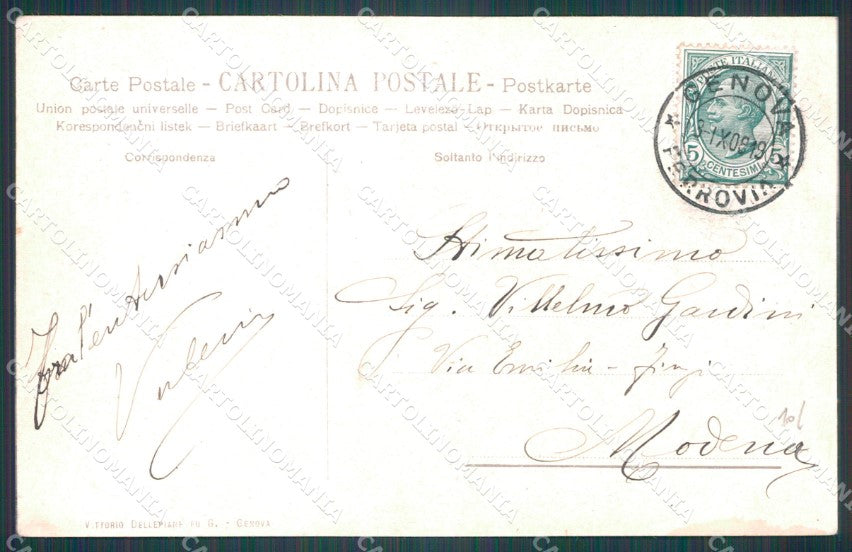 Carte Postale - CARTOLINA POSTALE - Postkarte
Union postale universelle — Post Card — Dopisnice — Levelezö-Lap — Karta Dopisnica
Korespondenční listek — Briefkaart — Brefkort — Tarjeta postal — Открытое письмо
Corrispondenza
Soltanto l'indirizzo
POSTE ITALIANE
5 CENTESIMI 5
GENOVA
FERROVIA
Fra l'entusiasmo
Stimatissimo
Sig. Villelmo Gardini
Via Emilia -
Modena
VITTORIO DELLEPIANE FU G. - GENOVA
CARTOLINOMANIA